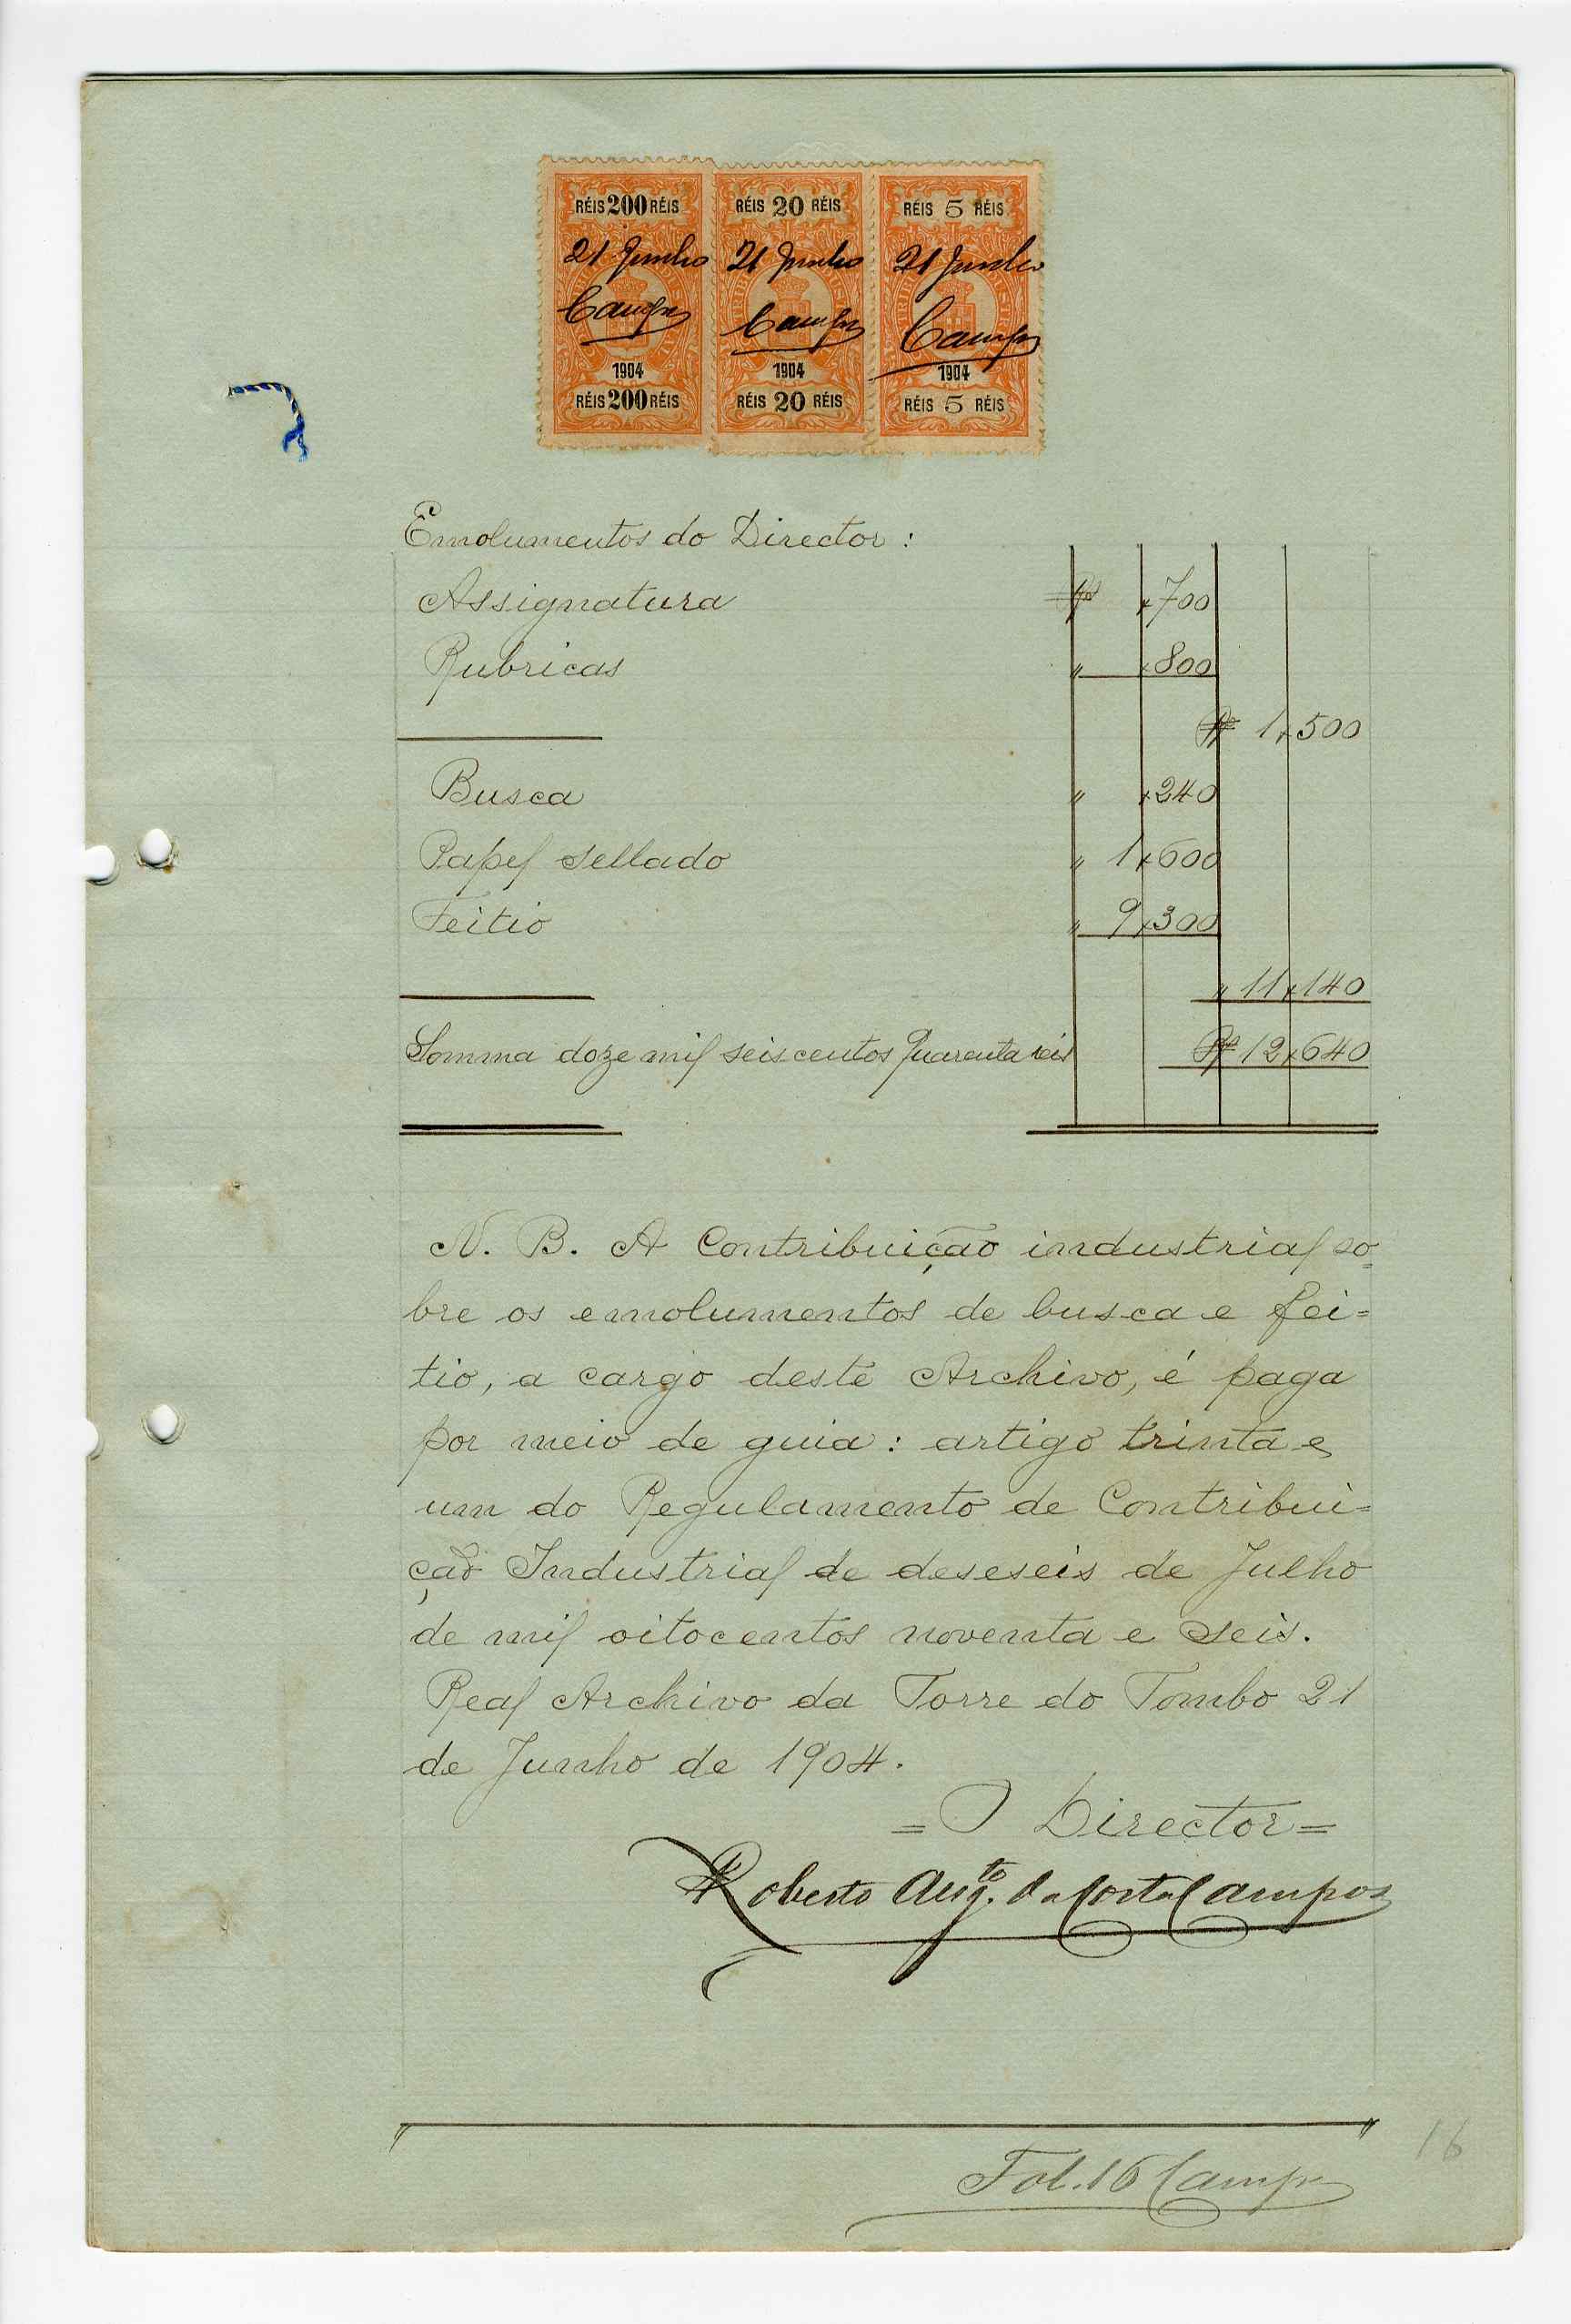 RÉIS 200 RÉIS RÉIS 20 RÉIS RÉIS 5 RÉIS
21 Junho 21 Junho 21 Junho
Campos Campos Campos
1904 1904 1904
RÉIS 200 RÉIS RÉIS 20 RÉIS RÉIS 5 RÉIS
Emolumentos do Director:
Assignatura Rs $700
Rubricas " $800
Rs 1$500
Busca " $240
Papel sellado " 1$600
Feitio " 9$300
" 11$140
Somma doze mil seiscentos quarenta reis Rs 12$640
N. B. A Contribuição industrial so-
bre os emolumentos de busca e fei=
tio, a cargo deste Archivo, é paga
por meio de guia: artigo trinta e
um do Regulamento de Contribui=
ção Industrial de deseseis de Julho
de mil oitocentos noventa e seis.
Real Archivo da Torre do Tombo 21
de Junho de 1904.
=O Director=
Roberto Augto. da Costa Campos
Fol. 16 Campos
16